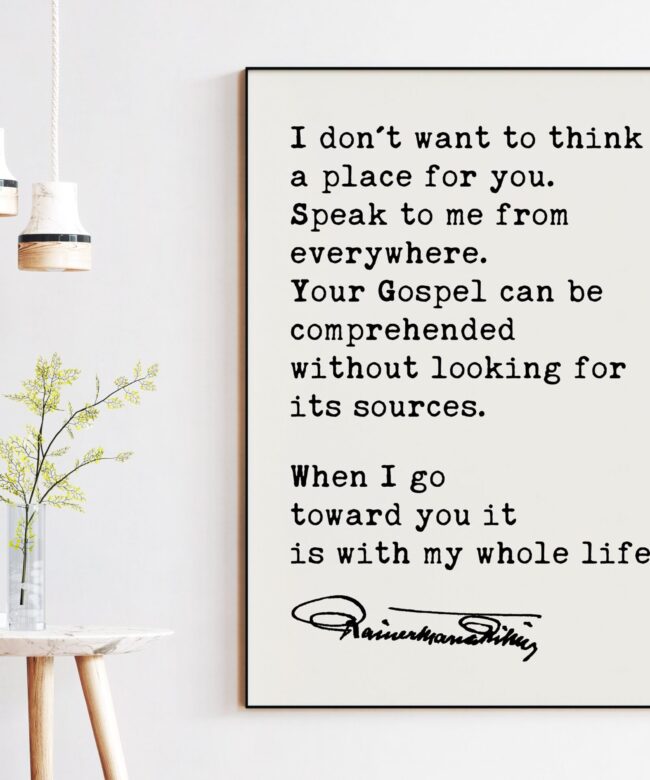 I don´t want to think
a place for you.
Speak to me from
everywhere.
Your Gospel can be
comprehended
without looking for
its sources.
When I go
toward you it
is with my whole life
Rainer Maria Rilke